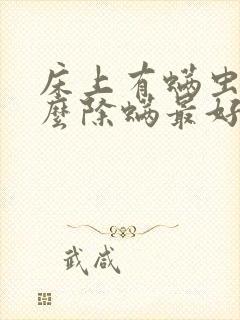 床上有螨虫
麼除螨最好
武咸